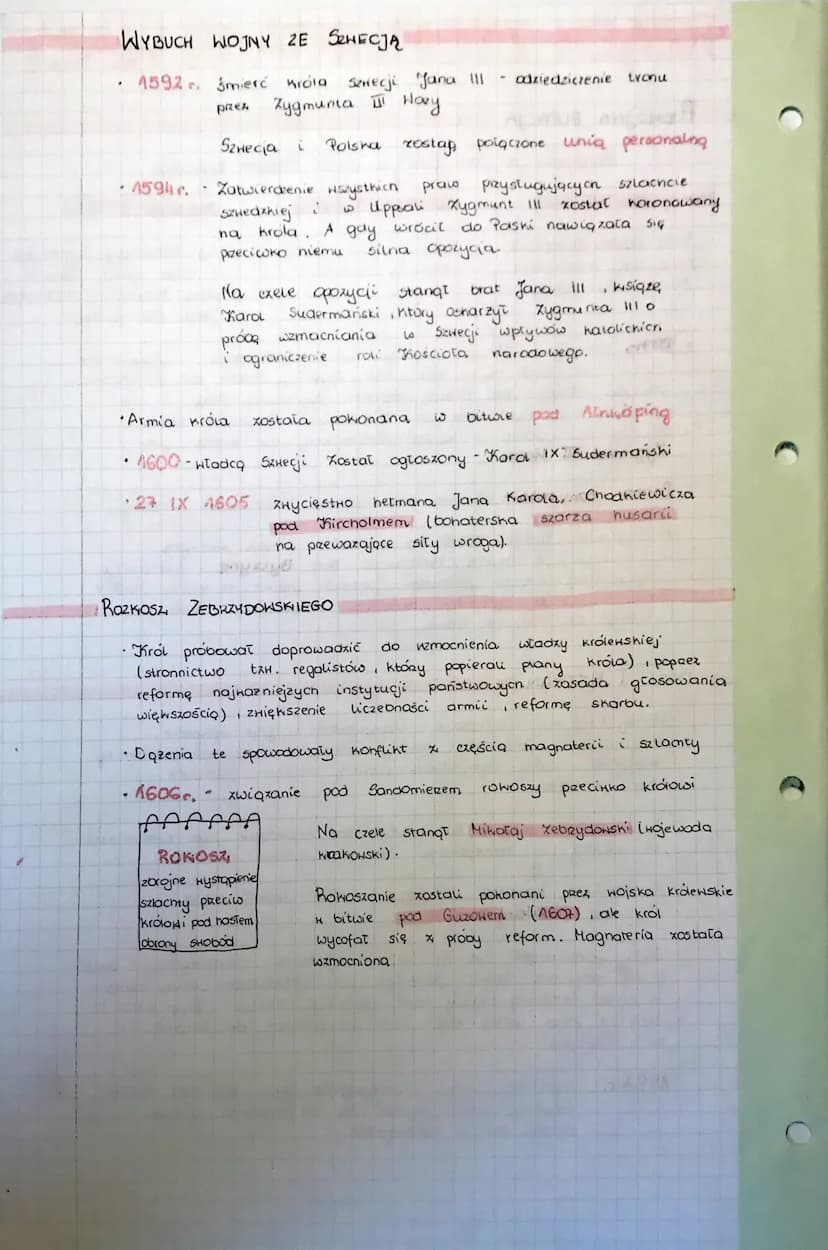 WYBUCH WOJNY ZE SZWECJĄ
• 1592 r. śmierć króla Szwecji Jana III - odziedziczenie tronu
przez Zygmunta III Wazy
Szwecja i Polska zostały połączone unią personalną
• 1594 r. - Zatwierdzenie wszystkich praw przysługujących szlachcie
szwedzkiej i w Uppsali Zygmunt III został koronowany
na króla. A gdy wrócił do Polski nawiązała się
przeciwko niemu silna opozycja.
Na czele opozycji stanął brat Jana III, książę
Karol Sudermański, który oskarżył Zygmunta III o
próbę wzmacniania w Szwecji wpływów katolickich
i ograniczenie roli Kościoła narodowego.
• Armia króla została pokonana w bitwie pod
• 1600 - władcą Szwecji został ogłoszony - Karol IX Sudermański
• 27 IX 1605 zwycięstwo hetmana Jana Karola Chodkiewicza
pod Kircholmem (bohaterska szarża husarii
na przeważające siły wroga).
ROKOSZ ZEBRZYDOWSKIEGO
• Król próbował doprowadzić do wzmocnienia władzy królewskiej
(stronnictwo tzw. regalistów, którzy popierali plany króla), poprzez
reformę najważniejszych instytucji państwowych (zasada głosowania
większością), zwiększenie liczebności armii, reformę skarbu.
• Dążenia te spowodowały konflikt z częścią magnaterii i szlachty
• 1606 r. - związanie pod Sandomierzem rokoszy przeciwko królowi
Na czele stanął Mikołaj Zebrzydowski (wojewoda
krakowski).
ROKOSZ
zbrojne wystąpienie
szlachty przeciw
królowi pod hasłem
obrony swobód
Rokoszanie zostali pokonani przez wojska królewskie
w bitwie pod Guzowem (1607), ale król
wycofał się z próby reform. Magnateria została
wzmocniona